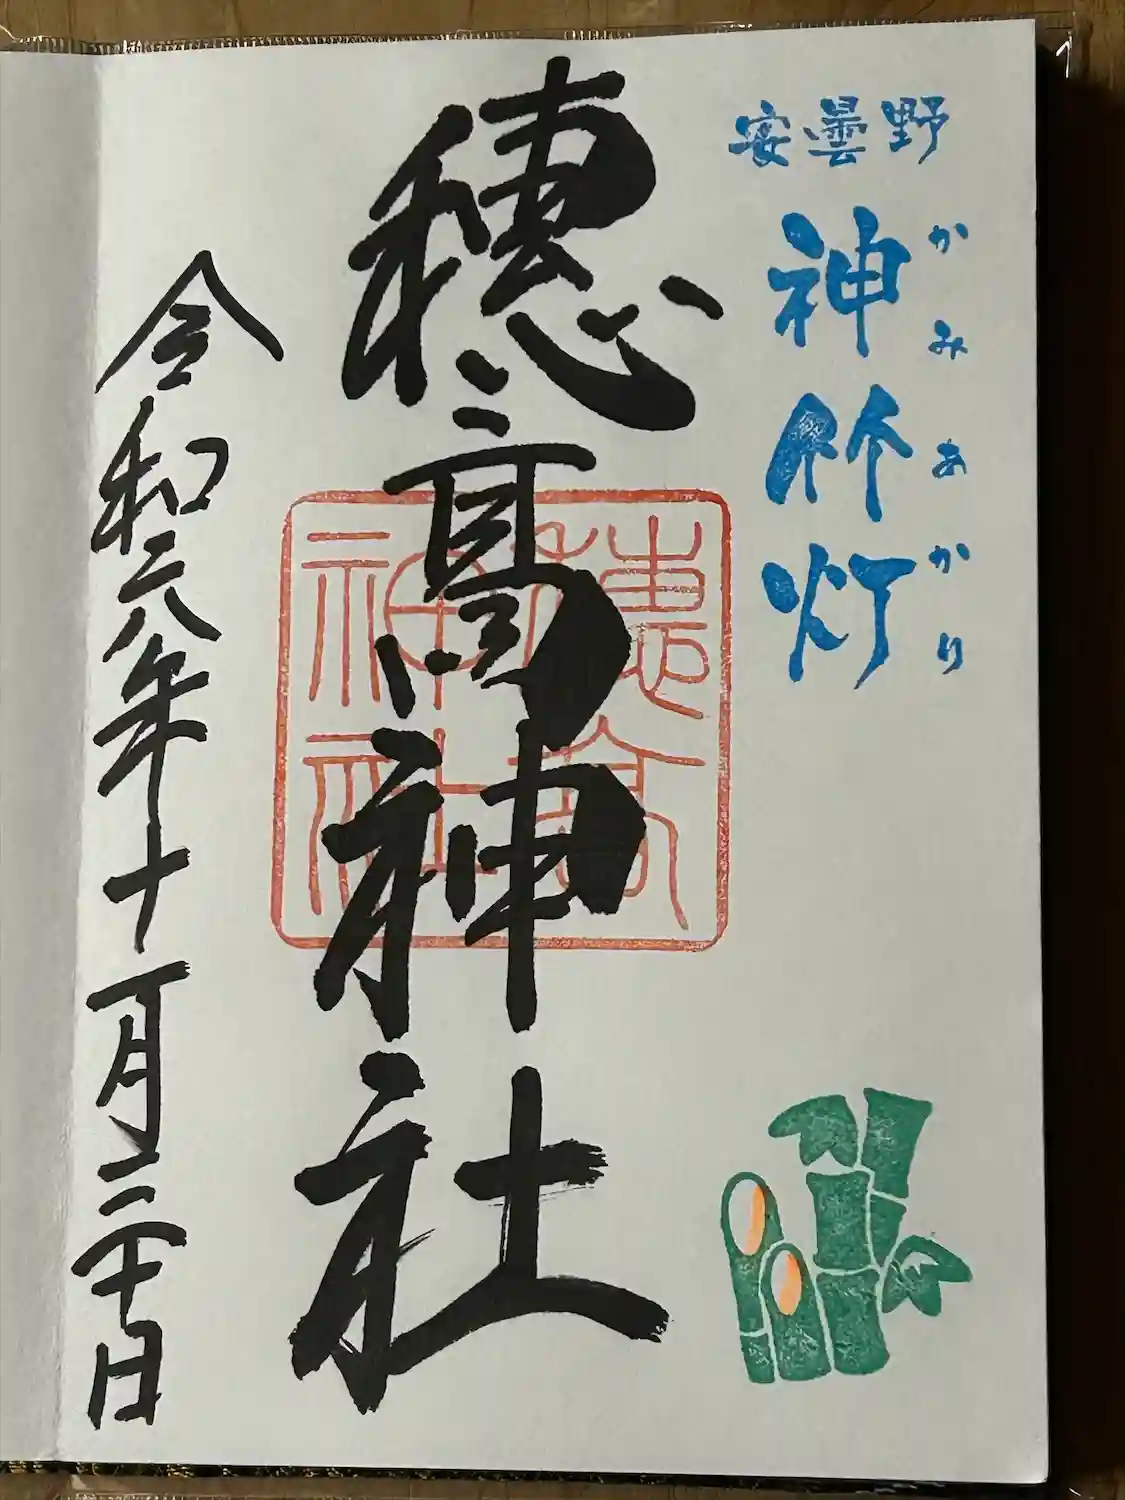 安曇野
神竹灯
かみあかり
穂高神社
穂高神社
令和六年十一月三十日